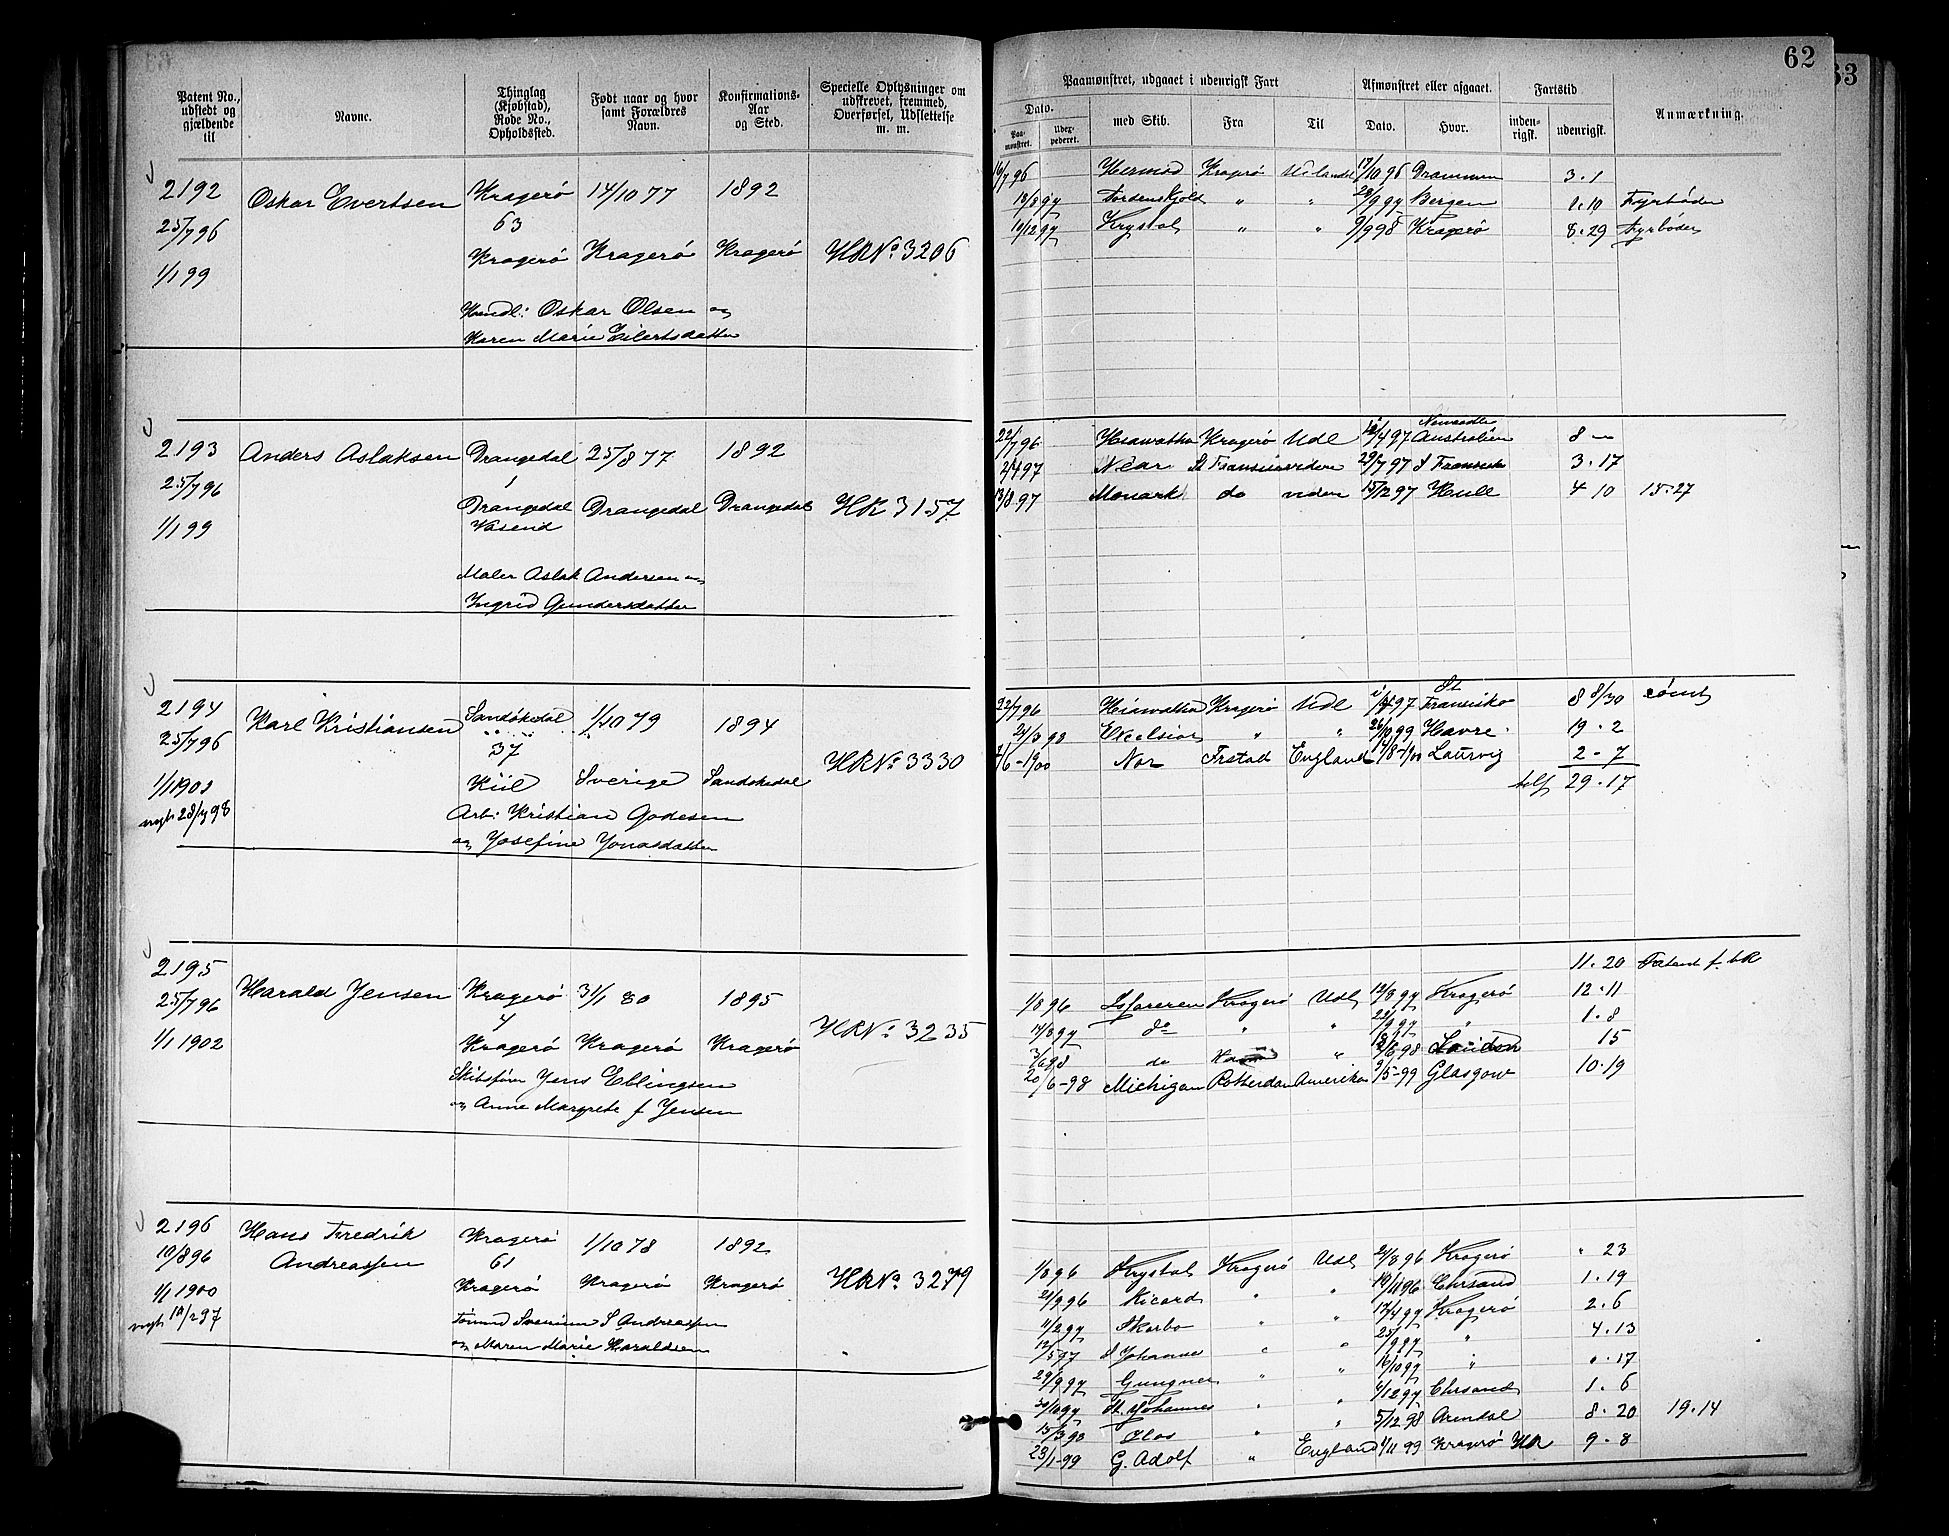 62
Patent No., udstedt og gjældende til
Navne.
Thinglag (Kjøbstad), Rode No., Opholdssted.
Født naar og hvor samt Forældres Navn.
Konfirmations-Aar og Sted.
Specielle Oplysninger om udskrevet, fremmed, Overførsel, Udslettelse m. m.
Paamønstret, udgaaet i udenrigsk Fart
Dato.
Paa-mønstret.
Udex-pederet.
med Skib.
Fra
Til
Afmønstret eller afgaaet.
Dato.
Hvor.
Fartstid
inden-rigsk.
udenrigsk.
Anmærkning.
2192 Oskar Evertsen Kragerø 14/10 77 1892
25/7 96 63
1/1 99 Kragerø Kragerø Kragerø HR No 3206
Oskar Olsen og
Karen Marie Eilertsdatter
16/7 96 Hermod Kragerø Udlandet 17/10 96 Drammen 3.1
13/8 97 Tordenskjold " " 23/9 97 Bergen 1.10 Fyrbøder
10/12 97 Krystal " " 9/9 98 Kragerø 8.29 Fyrbøder
2193 Anders Aslaksen Drangedal 25/8 77 1892
25/7 96 1
1/1 99 Drangedal Drangedal Drangedal HR 3157
Vasend
Maler Aslak Andersen og
Ingrid Gundersdatter
22/7 96 Hiawatha Kragerø Udl /4 97 Newcastle Australien 8 –
2/4 97 Near St Fransisco viden 29/7 97 S Fransisko 3.17
13/8 97 Monark do viden 15/12 97 Hull 4 10 15.27
2194 Karl Kristiansen Sandøkedal 1/10 79 1894
25/7 96 37
1/1 1902 Kiil Sverige Sandøkedal HR No 3330
28/7 98
Arb: Kristian Godesen
og Josefine Jonasdatter
22/7 96 Hiawatha Kragerø Udl 97 St Fransisko 8 8/30 rømt
21/3 98 Exelsior " " 26/10 99 Havre 19.2
1900 Nor Frstad England /8-1900 Laurvig 2-7
29.17
2195 Harald Jensen Kragerø 31/1 80 1895
25/7 96 4
1/1 1902 Kragerø Kragerø Kragerø HR No 3235
Skibsfører Jens Eblingsen
og Anne Margrete f Jensen
11.20 Patent f.
1/8 96 Kragerø Udl 12/8 97 Kragerø 12.11
14/8 97 do " " 22/9 97 " 1.8
3/6 98 do " /6 98 London 15
20/6-98 Michigan Rotterdam Amerika 9/5-99 Glasgow 10.19
2196 Hans Fredrik Kragerø 1/10 78 1892
10/8 96 Andreassen 61
1/1 1900 Kragerø Kragerø Kragerø HR No 3279
/2 97
S Andreassen
og Maren Marie Haraldsen
1/8 96 Krystal Kragerø Udl 24/8 96 Kragerø " 23
21/9 96 Ricard " " 10/11 96 Chrsand 1.19
11/2 97 Skarbo " " 17/4 97 Kragerø 2.6
12/5 97 St Johannes " " 25/9 97 " 4.13
29/9 97 Gungner " " 16/10 97 " ".17
30/10 97 St. Johannes " " 6/12 97 Chrsand 1.6
15/3 98 Olas " " 5/12 98 Arendal 8.20 19.14
23/1-99 G. Adolf " England 1/11 99 Kragerø HR 9.8